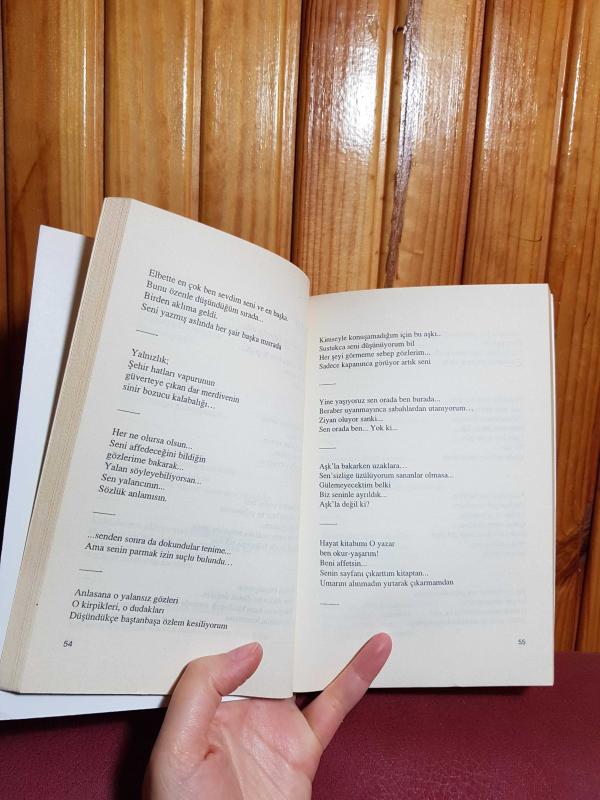 Elbette en çok ben sevdim seni ve en başka.
Bunu özenle düşündüğüm sırada...
Birden aklıma geldi.
Seni yazmış aslında her şair başka mısrada
Yalnızlık;
Şehir hatları vapurunun
güverteye çıkan dar merdivenin
sinir bozucu kalabalığı…
Her ne olursa olsun...
Seni affedeceğini bildiğin
gözlerime bakarak...
Yalan söyleyebiliyorsan...
Sen yalancının...
Sözlük anlamısın.
...senden sonra da dokundular tenime...
Ama senin parmak izin suçlu bulundu…
Anlasana o yalansız gözleri
O kirpikleri, o dudakları
Düşündükçe baştanbaşa özlem kesiliyorum
54
Kimseyle konuşamadığım için bu aşkı...
Sustukca seni düşünüyorum bil
Her şeyi görmeme sebep gözlerim...
Sadece kapanınca görüyor artık seni
Yine yaşıyoruz sen orada ben burada...
Beraber uyanmayınca sabahlardan utanıyorum…
Ziyan oluyor sanki...
Sen orada ben... Yok ki...
Aşk'la bakarken uzaklara…
Sen'sizliğe üzülüyorum sananlar olmasa...
Gülemeyecektim belki
Biz seninle ayrıldık...
Aşk'la değil ki?
Hayat kitabımı O yazar
ben okur-yaşarım!
Beni affetsin...
Senin sayfanı çıkarttım kitaptan...
Umarım alınmadın yırtarak çıkarmamdan
55